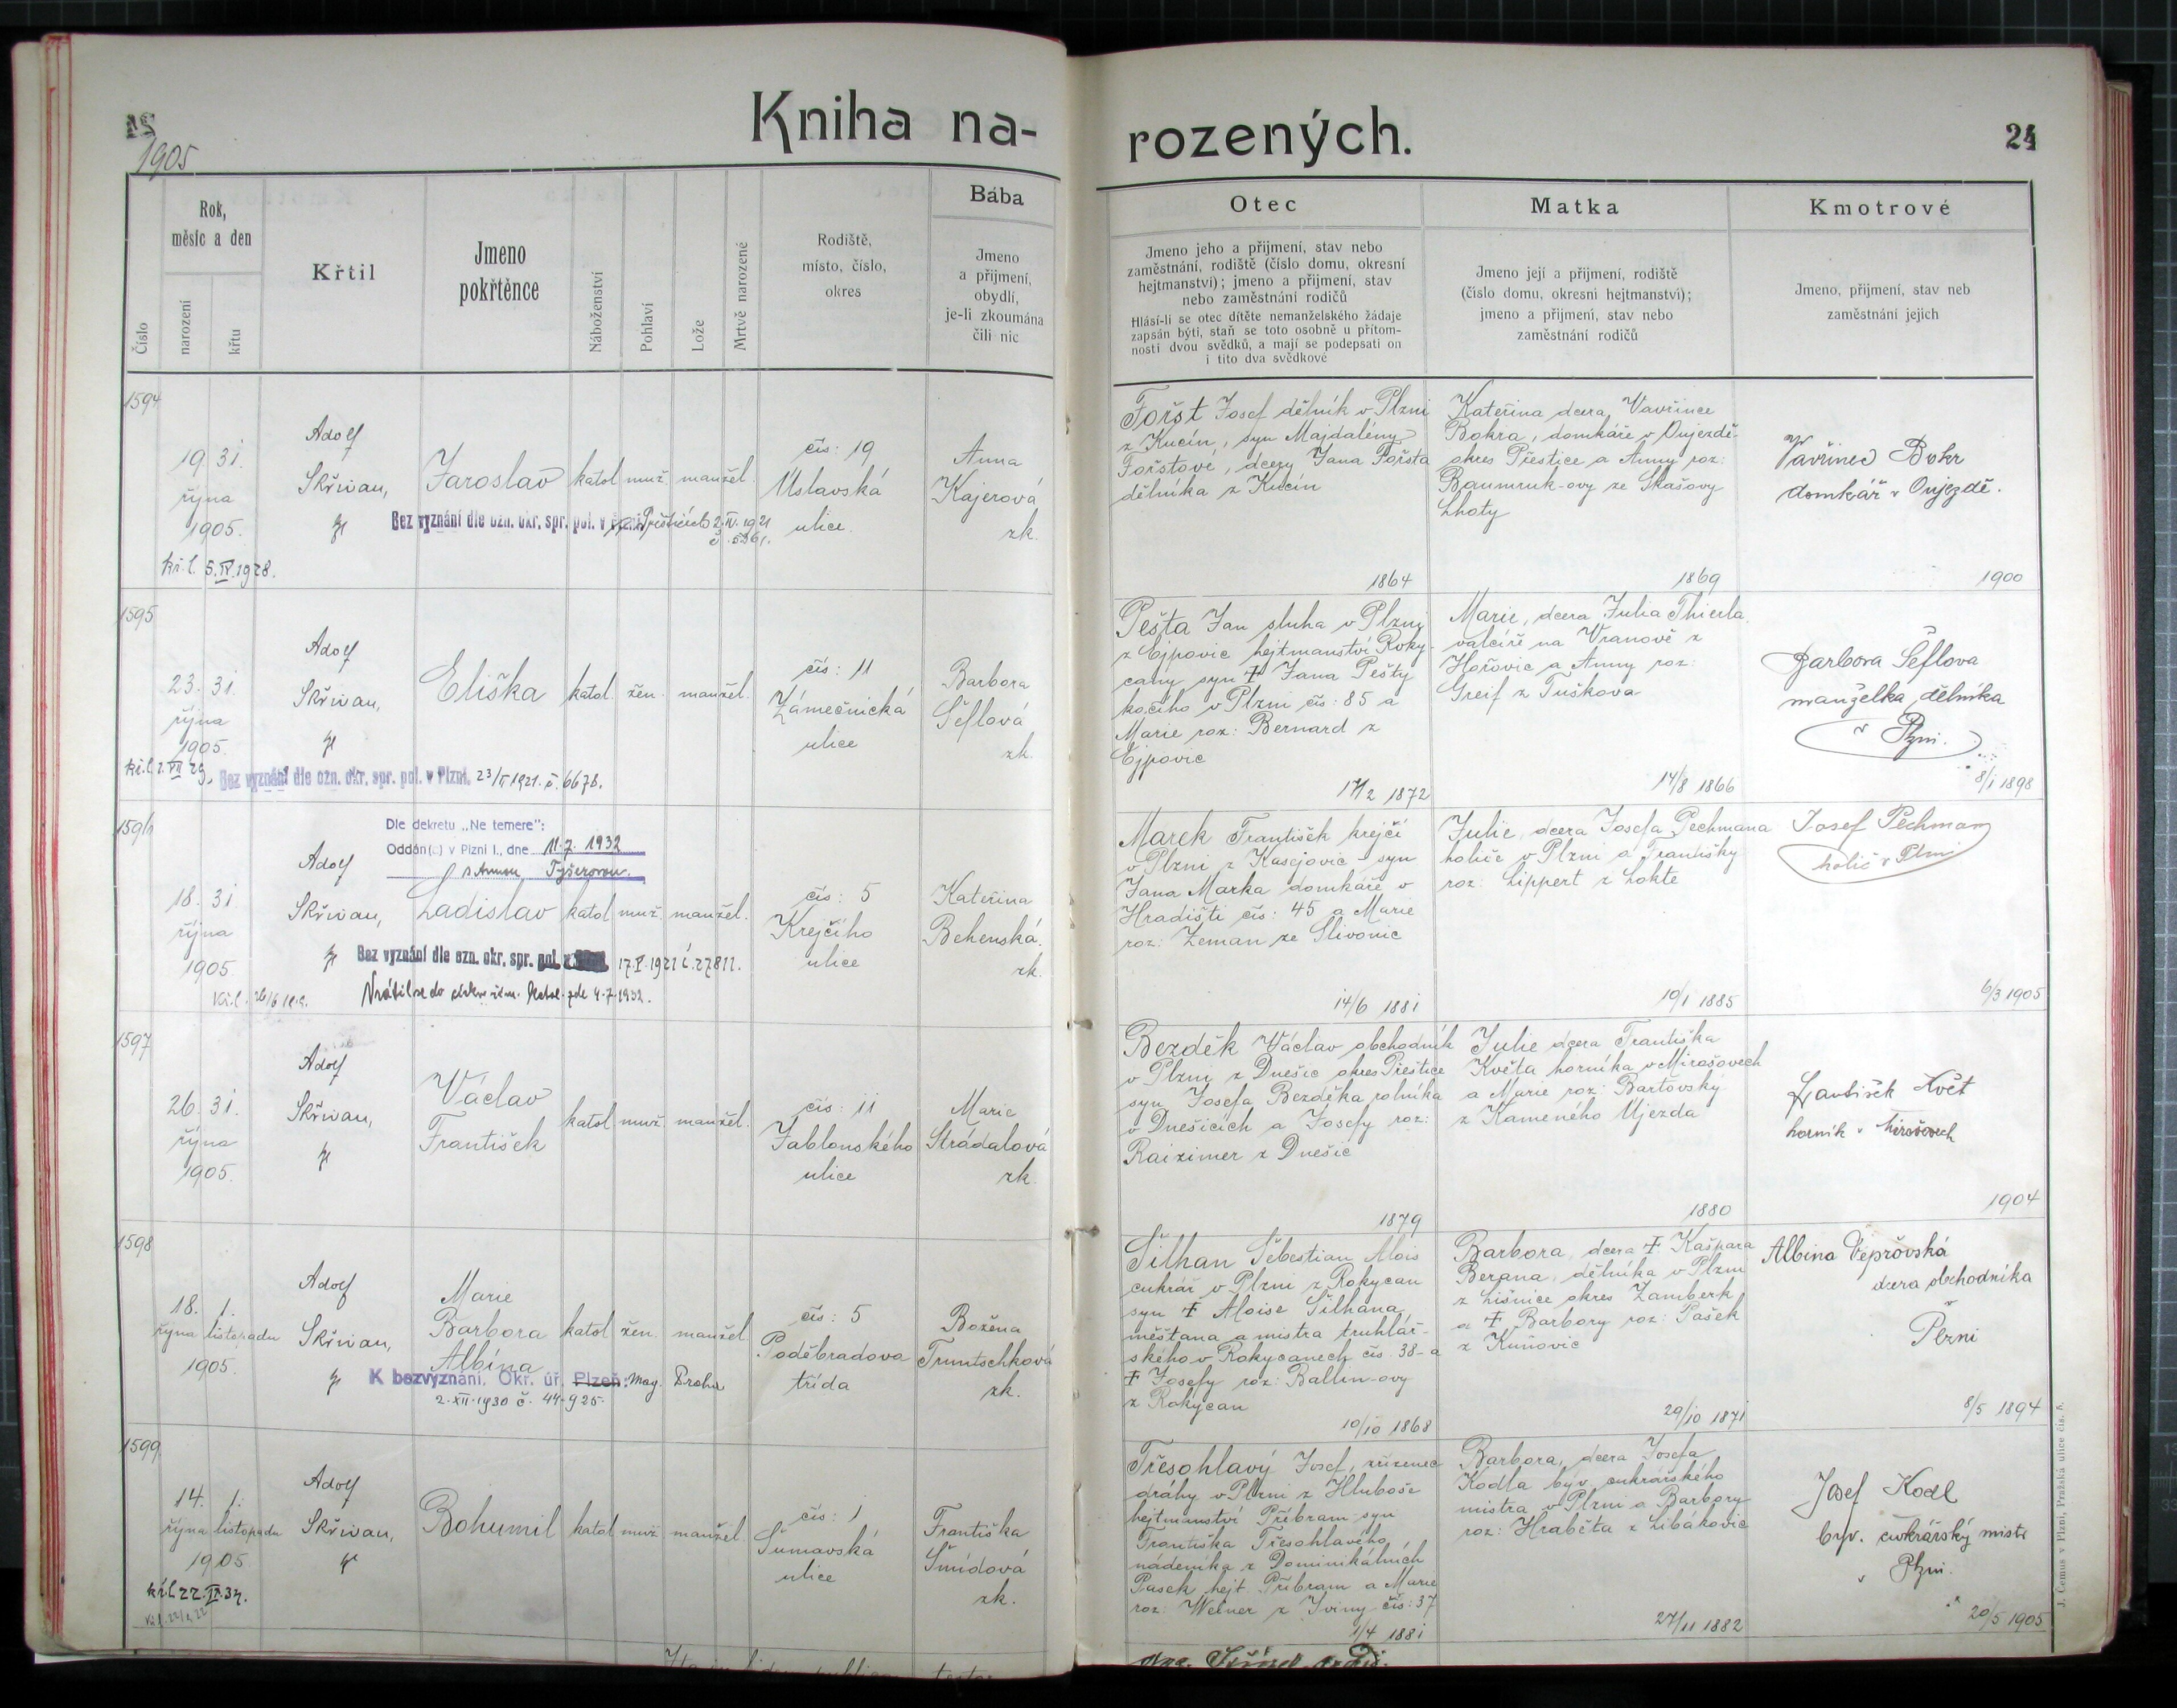 Kniha na-
rozených.
24
1905
Číslo
Rok,
měsíc a den
narození
křtu
Křtil
Jmeno
pokřtěnce
Náboženství
Pohlaví
Lože
Mrtvě narozené
Rodiště,
místo, číslo,
okres
Bába
Jmeno
a přijmení,
obydlí,
je-li zkoumána
čili nic
Otec
Jmeno jeho a přijmení, stav nebo
zaměstnání, rodiště (číslo domu, okresní
hejtmanství); jmeno a přijmení, stav
nebo zaměstnání rodičů
Hlásí-li se otec dítěte nemanželského žádaje
zapsán býti, staň se toto osobně u přítom-
nosti dvou svědků, a mají se podepsati on
i tito dva svědkové
Matka
Jmeno její a přijmení, rodiště
(číslo domu, okresní hejtmanství);
jmeno a přijmení, stav nebo
zaměstnání rodičů
Kmotrové
Jmeno, přijmení, stav neb
zaměstnání jejich
1594
19. 31.
října
1905.
kř. l. 5. IV. 1928.
Adolf
Skřivan,
Jaroslav
katol. muž. manžel.
Bez vyznání dle ozn. okr. spr. pol. v Přešticích 2. IV. 1921
č. 5361.
čís: 19
Úslavská
ulice.
Anna
Kajerová
zk.
Fořst Josef dělník v Plzni
z Kucín, syn Majdalény
Fořstové, dcery Jana Fořsta
dělníka z Kucín
1864
Kateřina dcera Vavřince
Bokra, domkáře v Oujezdě
okres Přestice a Anny roz:
Baumruk-ovy ze Skašovy
Lhoty
1869
Vavřinec Bokr
domkář v Oujezdě.
1900
1595
23. 31.
října
1905.
kř. l. 2. VII 29.
Adolf
Skřivan,
Eliška
katol. žen. manžel.
Bez vyznání dle ozn. okr. spr. pol. v Plzni. 23/II 1921. č. 6678.
čís: 11
Zámečnická
ulice
Barbora
Šeflová
zk.
Pešta Jan sluha v Plzni
z Ejpovic hejtmanství Roky-
cany syn ✝ Jana Pešty
kočího v Plzni čís: 85 a
Marie roz: Bernard z
Ejpovic
17/2 1872
Marie, dcera Julia Thierla
valcíře na Vranově z
Hořovic a Anny roz:
Greif z Tuškova
14/8 1866
Barbora Šeflova
manželka dělníka
v Plzni.
8/1 1898
1596
18. 31.
října
1905.
Adolf
Skřivan,
Dle dekretu „Ne temere":
Oddán(a) v Plzni I., dne 11. 7. 1932
s Annou Tyšerovou.
Ladislav
katol. muž. manžel.
Bez vyznání dle ozn. okr. spr. pol. 17. V. 1921 č. 27811.
Vrátil se do církve řím. katol. zde 4. 7. 1932.
čís: 5
Krejčího
ulice
Kateřina
Behenská.
zk.
Marek František krejčí
v Plzni z Kasejovic syn
Jana Marka domkáře v
Hradišti čís: 45 a Marie
roz: Zeman ze Slivonic
14/6 1881
Julie, dcera Josefa Pechmana
holiče v Plzni a Františky
roz: Lippert z Lokte
10/1 1885
Josef Pechman
holič v Plzni
6/3 1905
1597
26. 31.
října
1905.
Adolf
Skřivan,
Václav
František
katol. muž. manžel.
čís: 11
Jablonského
ulice
Marie
Strádalová
zk.
Bezděk Václav obchodník
v Plzni z Dnešic okres Přeštice
syn Josefa Bezděka rolníka
v Dnešicích a Josefy roz:
Raiximer z Dnešic
1879
Julie dcera Františka
Květa horníka v Mirošovech
a Marie roz: Bartovský
z Kameného Újezda
1880
František Květ
horník v Mirošovech
1904
1598
18. 1.
října listopadu
1905.
Adolf
Skřivan,
Marie
Barbora
Albína
katol. žen. manžel.
K bezvyznání. Okr. úř. Plzeň: Mag. Praha
2. XII. 1930 č. 44.925.
čís: 5
Poděbradova
třída
Božena
Truntschková
zk.
Šilhan Šebestian Alois
cukrář v Plzni z Rokycan
syn ✝ Aloise Šilhana,
měšťana a mistra truhlář-
ského v Rokycanech čís. 38 a
✝ Josefy roz: Ballin-ovy
z Rokycan
10/10 1868
Barbora, dcera ✝ Kašpara
Berana, dělníka v Plzni
z Lišnice okres Žamberk
a ✝ Barbory roz: Pašek
z Kuňovic
29/10 1871
Albina Vepřovská
dcera obchodníka
v
Plzni
8/5 1894
1599
14. 1.
října listopadu
1905.
kř. l. 22. IV. 34.
Adolf
Skřivan,
Bohumil
katol. muž. manžel.
čís: 1
Šumavská
ulice
Františka
Šmídová
zk.
Třesohlavý Josef, zřízenec
dráhy v Plzni z Hluboše
hejtmanství Příbram syn
Františka Třesohlavého
nádeníka z Dominikálních
Pasek hejt. Příbram a Marie
roz: Welner z Jviny čís: 37
1/4 1881
Barbora, dcera Josefa
Kodla býv. cukrářského
mistra v Plzni a Barbory
roz: Hraběta z Libákovic
27/11 1882
Josef Kodl
byv. cukrářský mistr
v Plzni.
20/5 1905
J. Čemus v Plzni, Pražská ulice čís. 8.